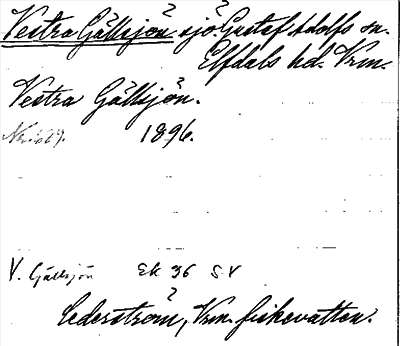 Vestra Gällsjön sjö. Gustaf Adolfs sn.
Elfdals hd. Vrm.
Vestra Gällsjön.
1896.
V. Gällsjön Ek 36 SV
Cederström, Vrm. fiskevatten.